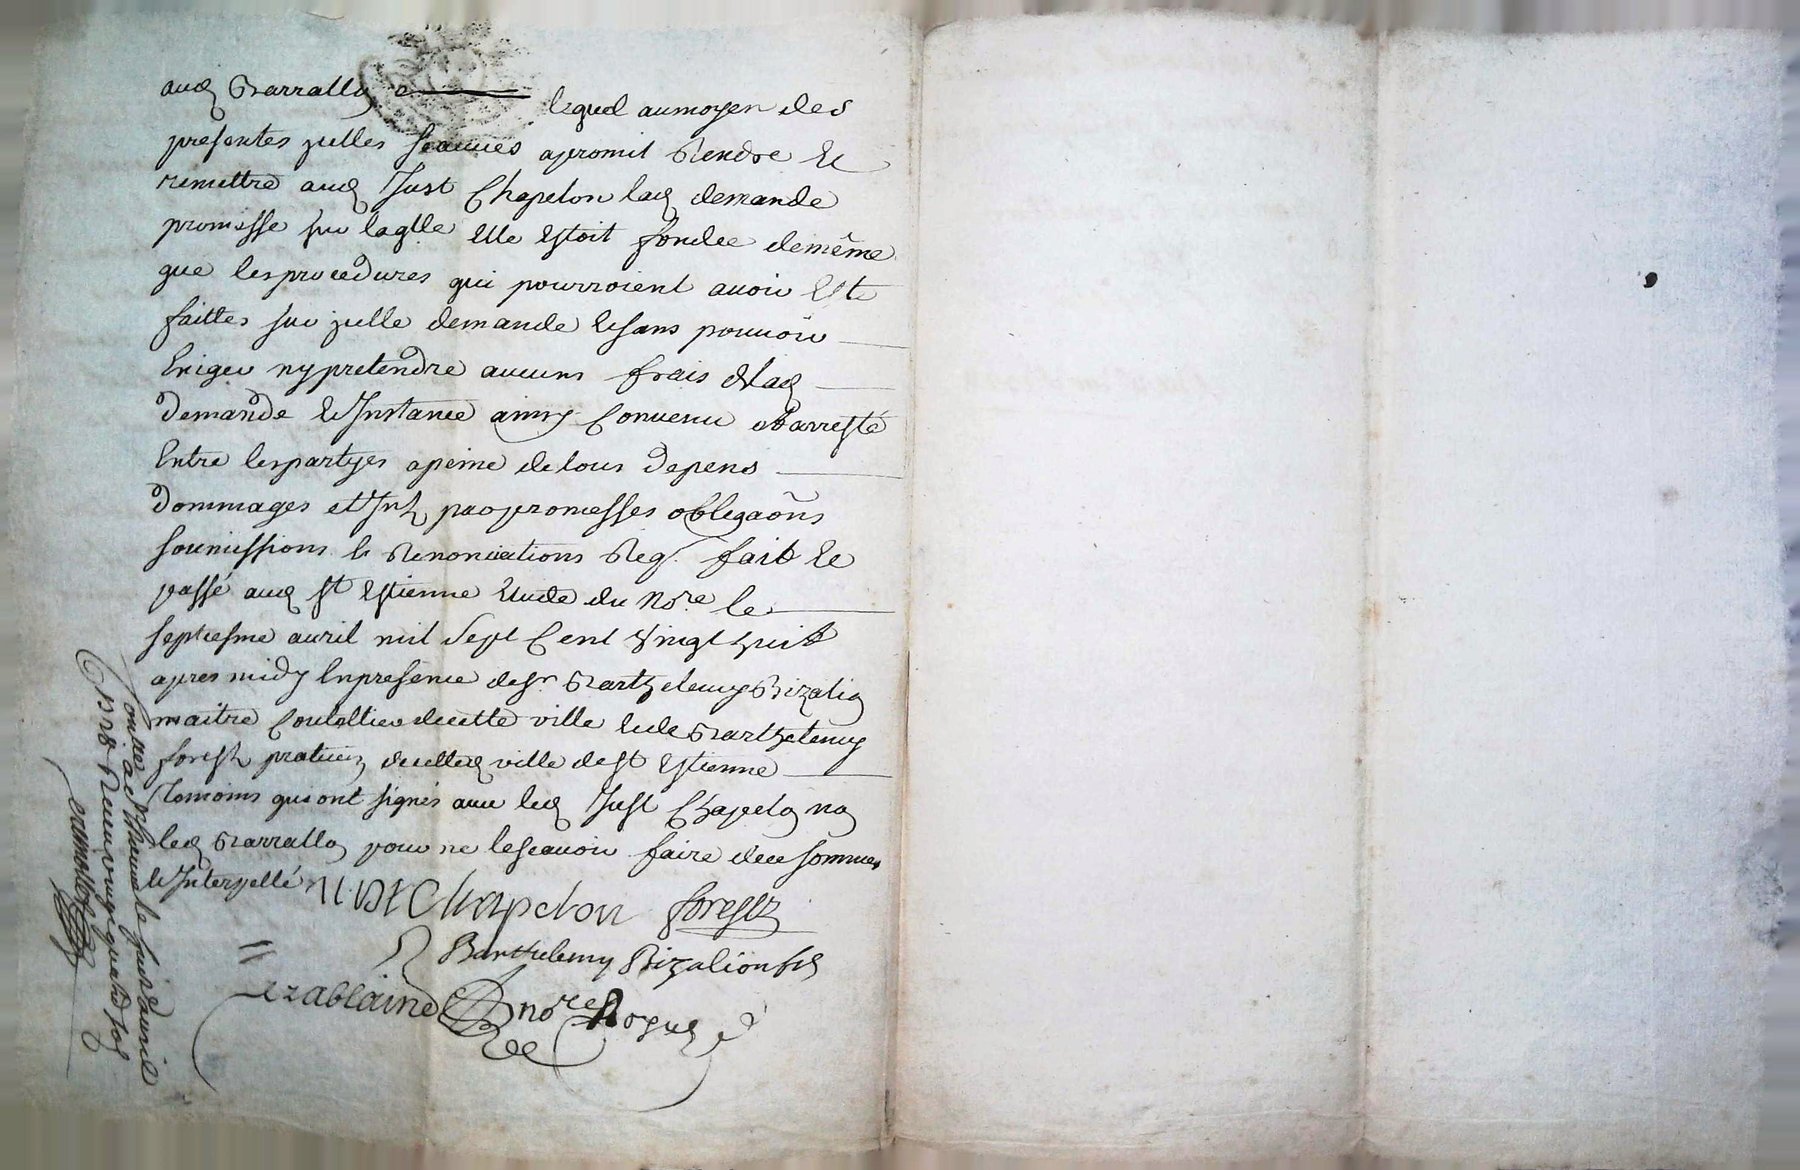 audᵗ Barrallon lequel au moyen des
presentes et icelles promit rendre Et
remettre audᵗ Just Chapelon ladᵗ demande
promesse sur laqlle Elle Estoit fondee de même
que les procedures qui pourroient avoir Esté
faittes sur icelle demande Et sans pouvoir
Exiger ny pretendre aucuns frais de ladᵗ
demande Et Instance ainsy Convenu et arresté
Entre les partyes a peine de tous depens
dommages et Intᵗ par promesses obligaõns
soumissions Et Renonciations Req. fait Et
passé audᵗ sᵗ Estienne Etude du Noʳᵉ le
septiesme avril mil sept Cent vingt huit
apres midy En presence de sʳ Barthelemy Bizalion
maitre Coutellier de cette ville Et de Barthelemy
forest praticien de cetted ville de sᵗ Estienne
temoins qui ont signés avec ledᵗ Just Chapelon non
ledᵗ Barrallon pour ne le sçavoir faire de ce sommé
Et Interpellé
Just Chapelon forestz
Barthelemy Bizalion fils
Ezablaine noʳᵉ Royal
Controllé a Sᵗ Etienne le huit avril
1728 Receu